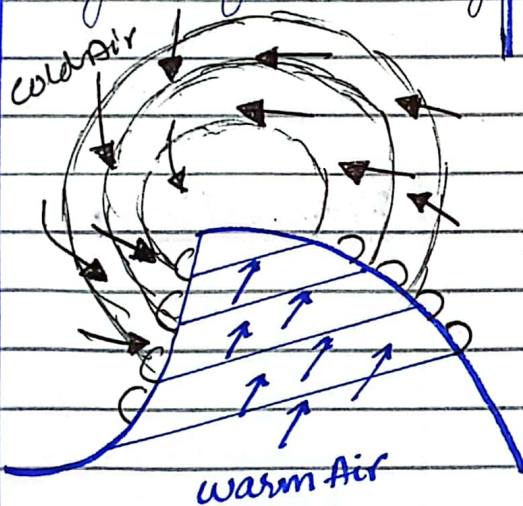 Cold Air
Warm Air